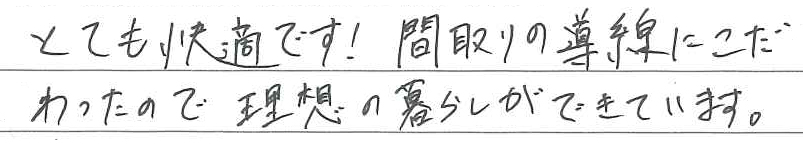 とても快適です! 間取りの導線にこだ
わったので理想の暮らしができています。